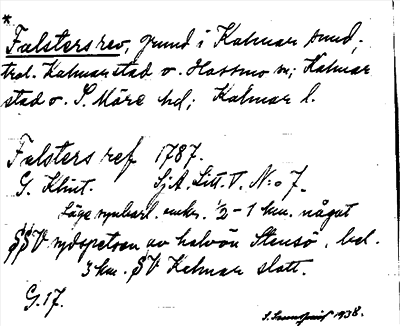 *
Falstersrev, grund i Kalmar sund;
trol. Kalmar stad o. Hossmo sn; Kalmar
stad o. S. Möre hd; Kalmar l.
Falsters ref 1787.
G. Klint. SjA. Litt. V. N:o 7.
Läge synbarl. omkr. ½-1 km. något
SSV sydspetsen av halvön Stensö, bel.
3 km. SV Kalmar slott.
G. 17.
1938.